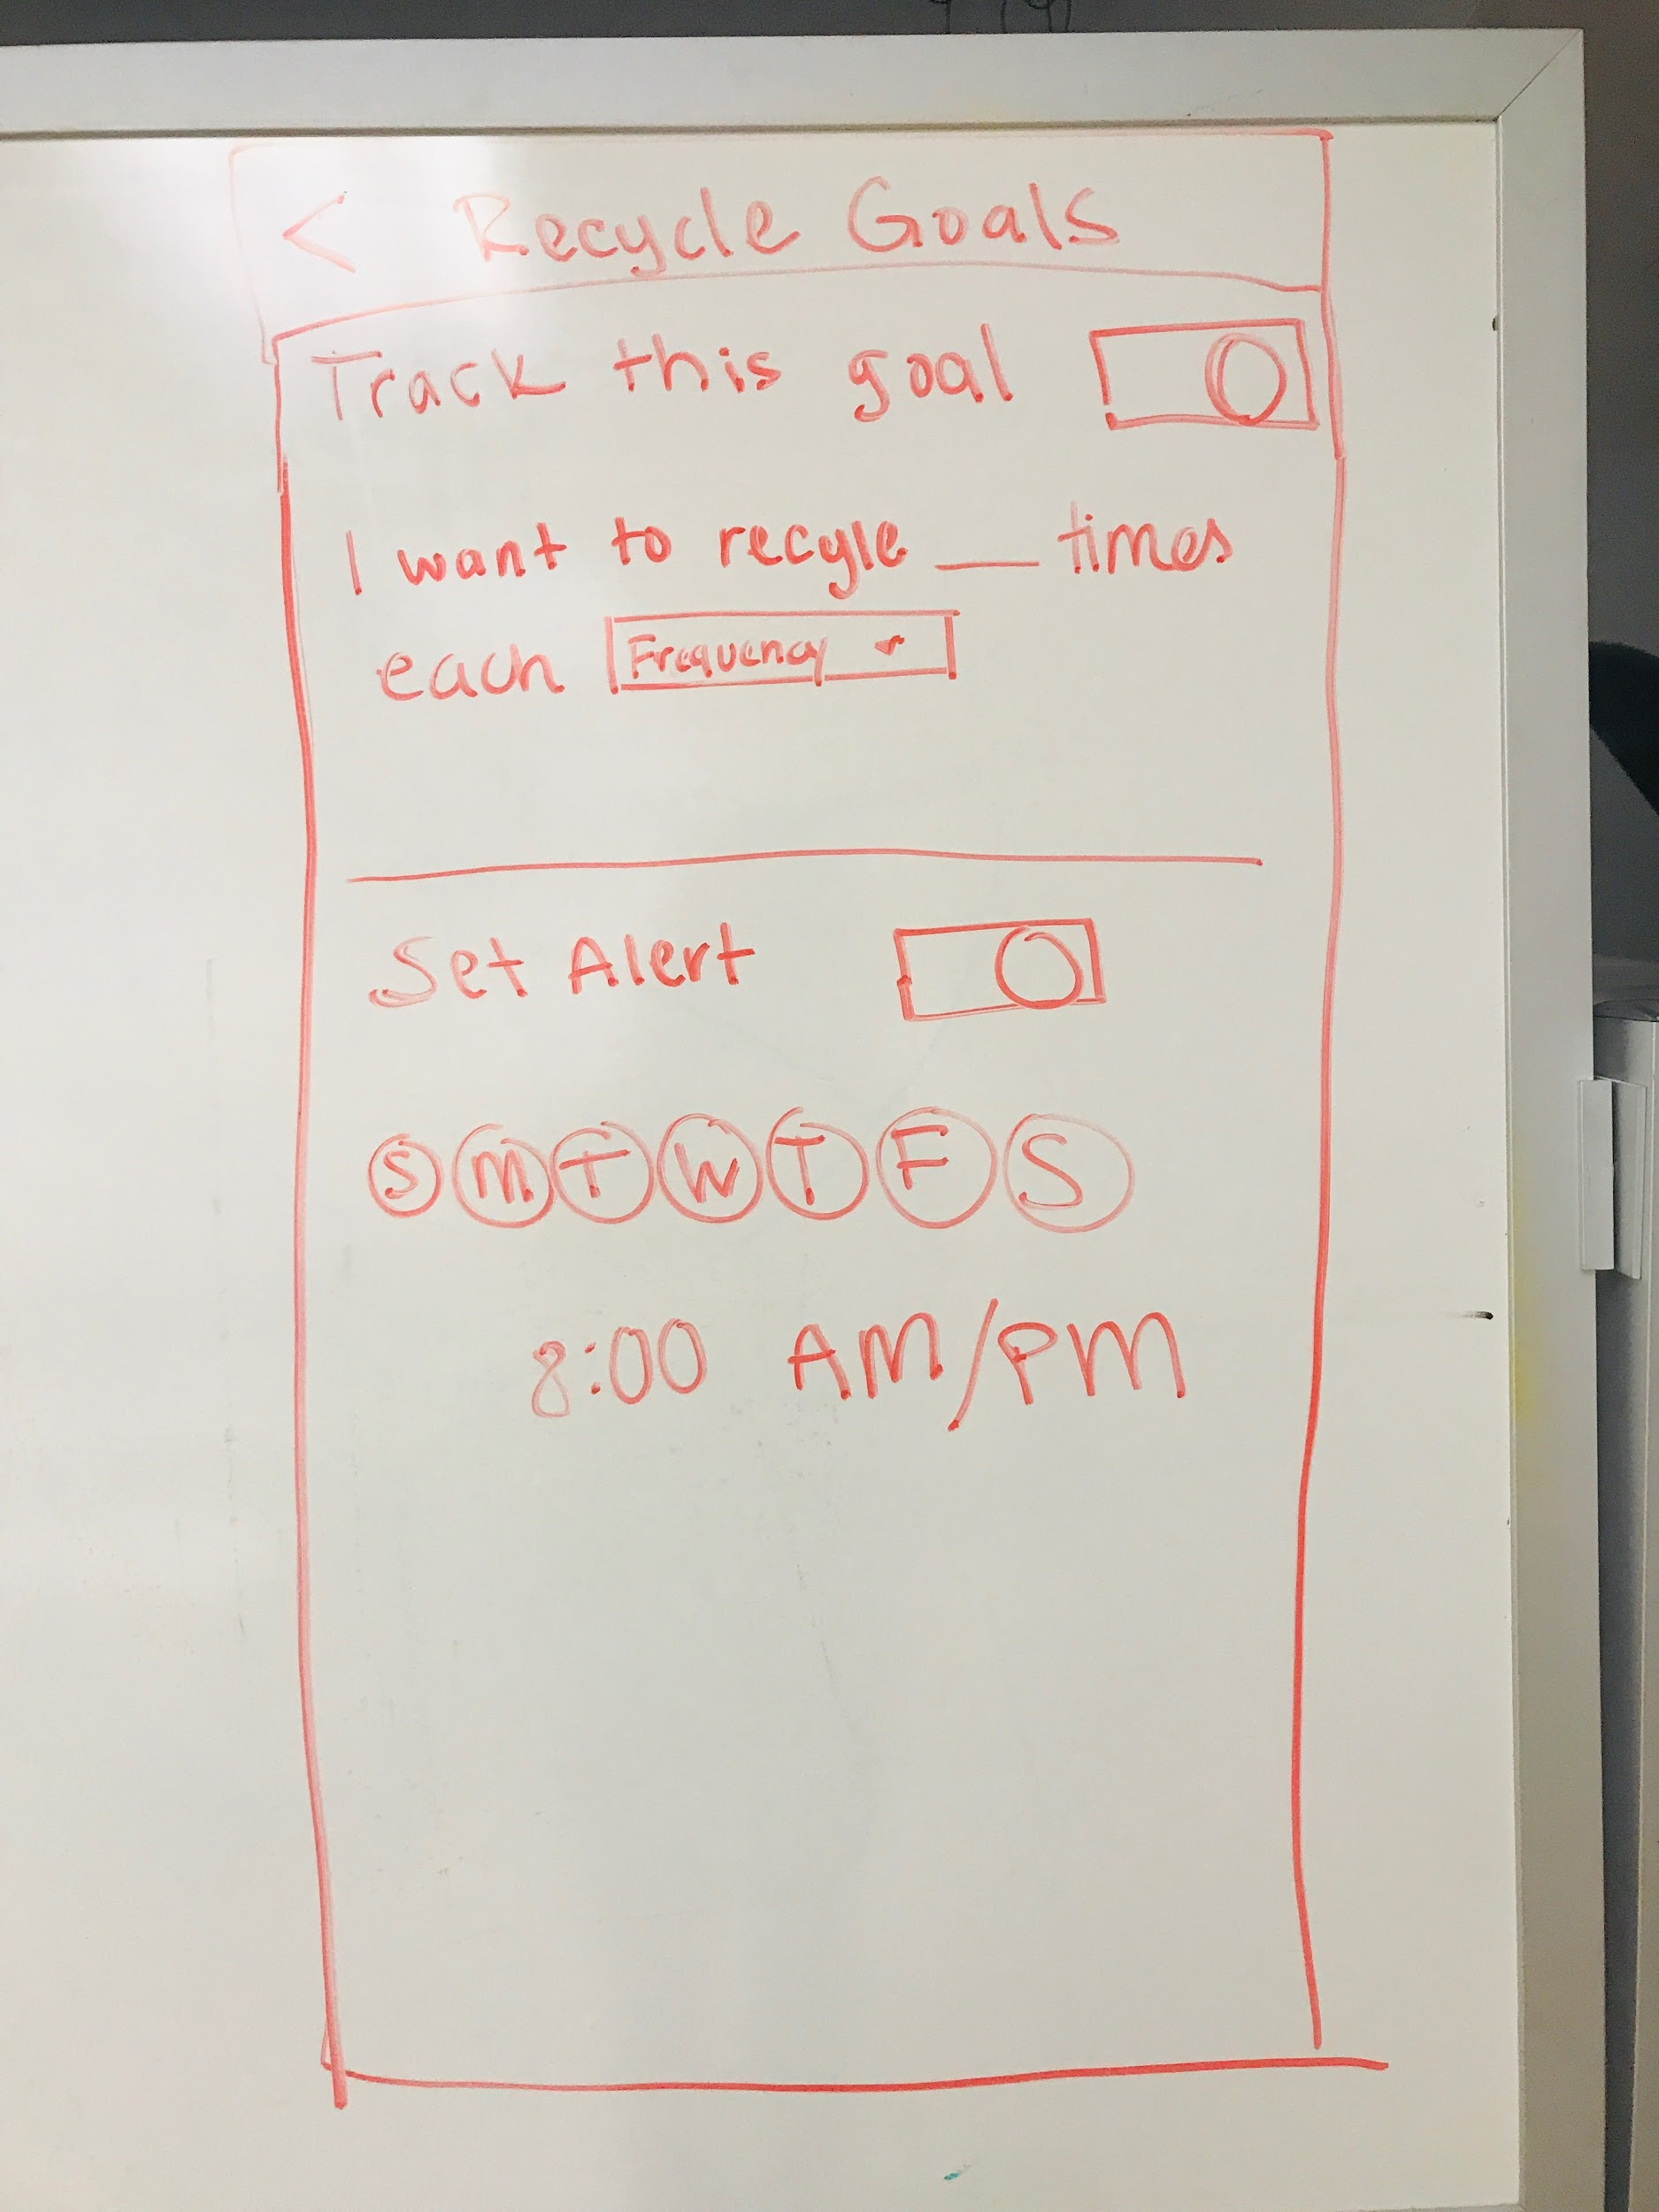 < Recycle Goals
Track this goal
I want to recyle __ times
each Frequency
Set Alert
S M T W T F S
8:00 AM/PM